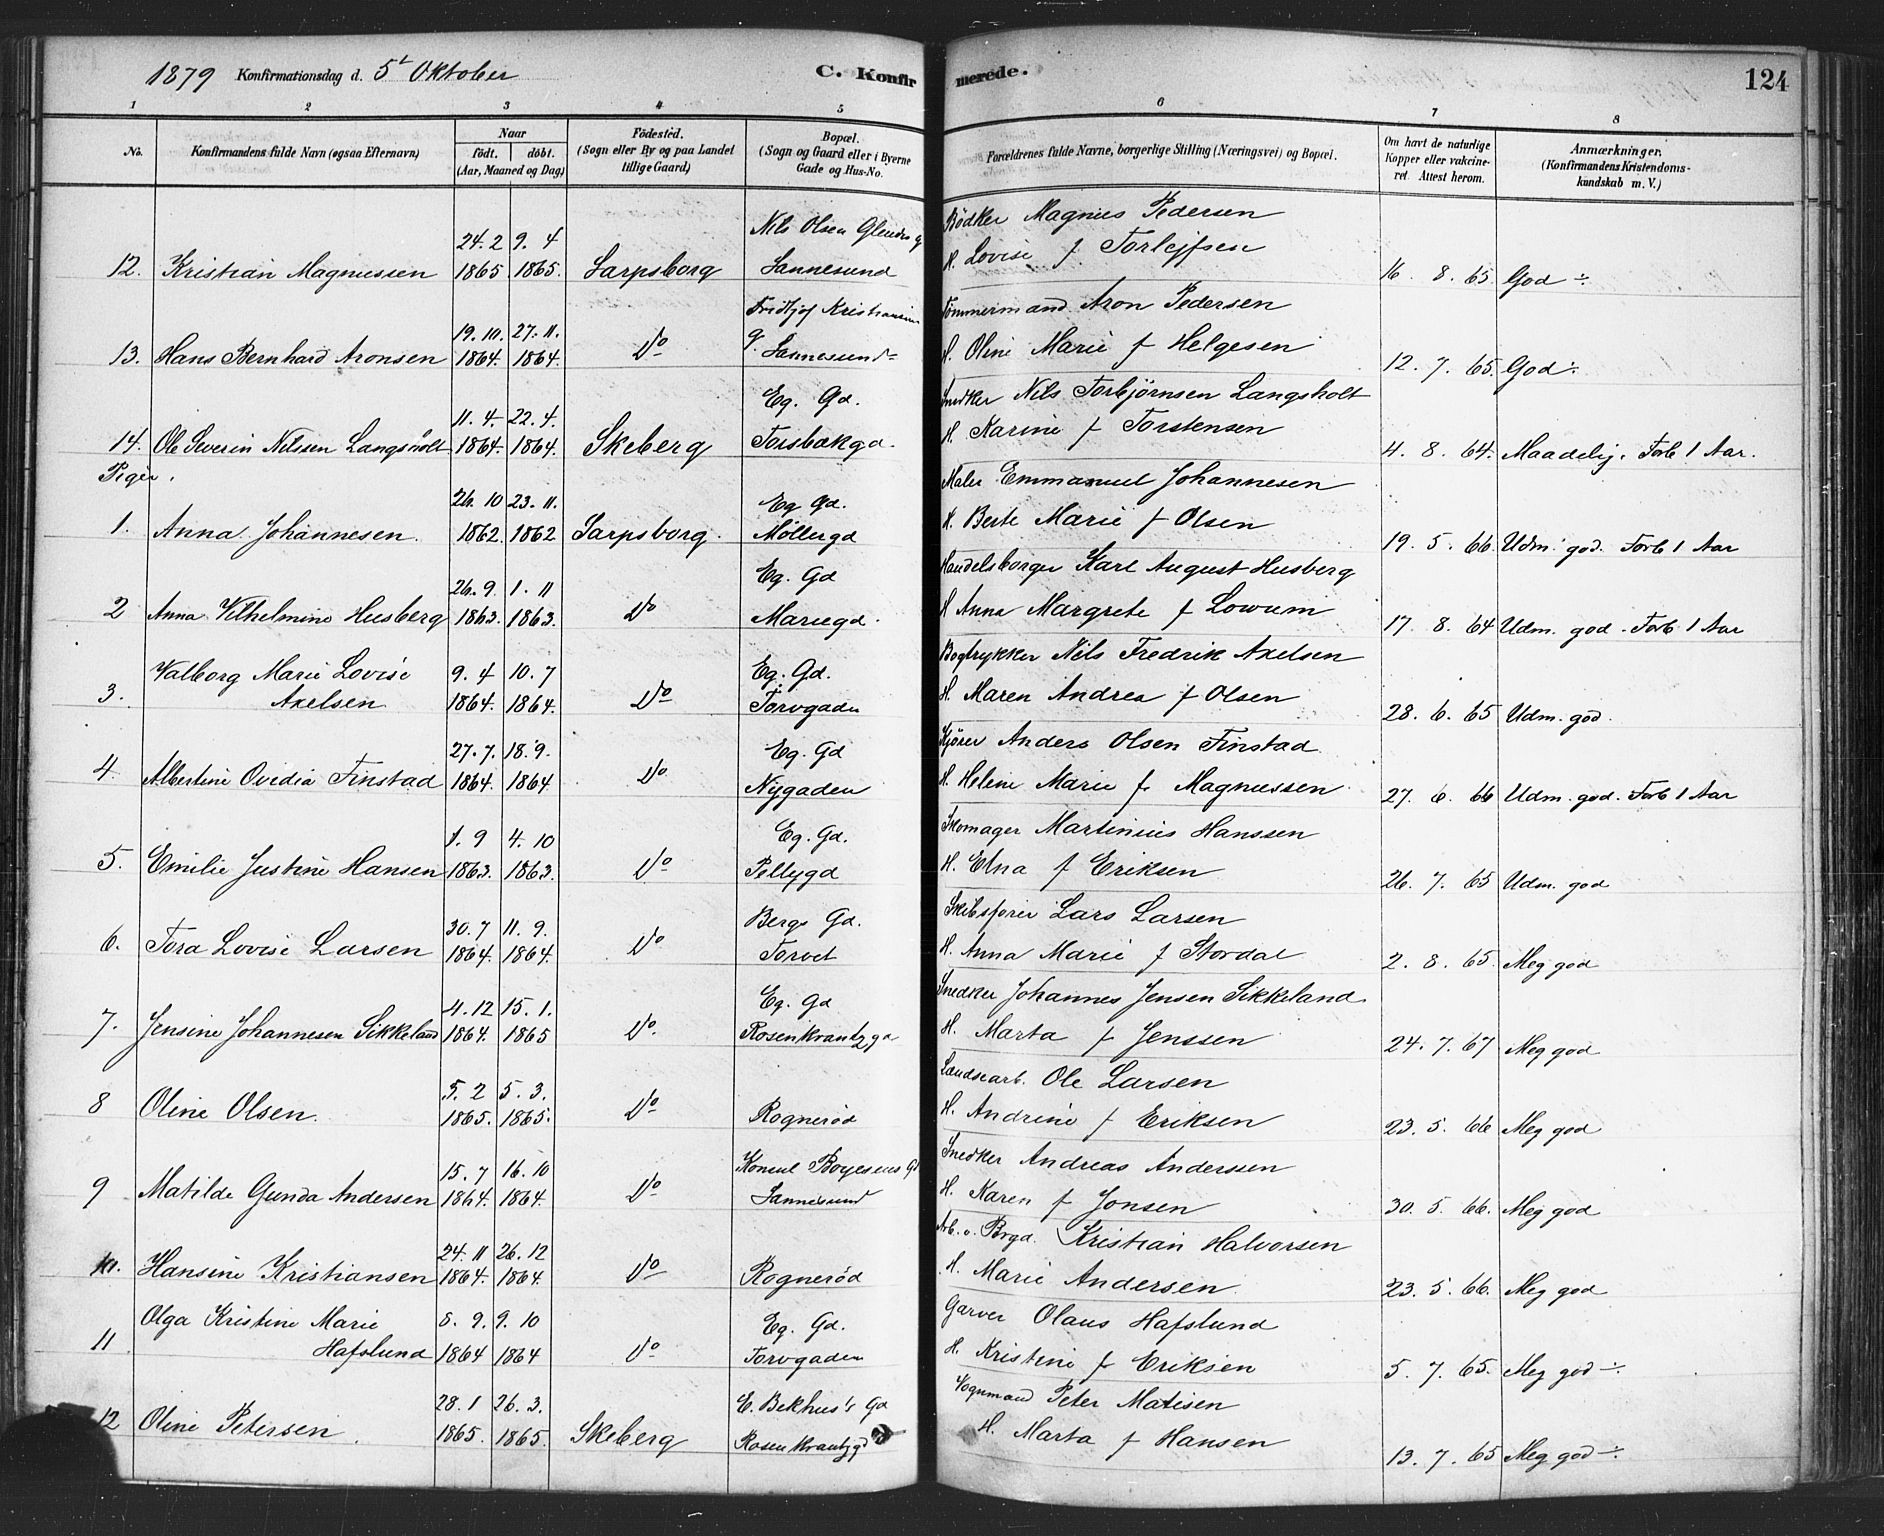 1879 Konfirmationsdag d. 5t Oktober C. Konfirmerede. 124
1 2 3 4 5 6 7 8
No. Konfirmandens fulde Navn (ogsaa Efternavn) Naar födt. döbt. (Aar, Maaned og Dag) Födested. (Sogn eller By og paa Landet tillige Gaard) Bopæl. (Sogn og Gaard eller i Byerne Gade og Hus-No. Forældrenes fulde Navne, borgerlige Stilling (Næringsvei) og Bopæl. Om havt de naturlige Kopper eller vakcineret. Attest herom. Anmærkninger. (Konfirmandens Kristendomskundskab m. V.)
24. 2 9. 4 Nils Olsen Bødker Magnus Pedersen
12. Kristian Magnussen 1865 1865. Sarpsborg Sannesund H. Lovise f Torlejfsen 16. 8. 65 God ÷
19. 10. 27. 11. Fridtjof Kristiansens Tömmermand Aron Pedersen
13. Hans Bernhard Aronsen 1864. 1864. Do g. Sannesund H. Oline Marie f Helgesen 12. 7. 65. God ÷
11. 4. 22. 4. Eg. Gd. Snedker Nils Torbjørnsen Langsholt
14. Ole Severin Nilssen Langsholt 1864. 1864. Skeberg Torsbækgd. H. Karine f Torstensen 4. 8. 64. Maadelig. Forb 1 Aar.
Piger.
26. 10 23. 11. Eg Gd. Maler Emmanuel Johannesen
1. Anna Johannesen. 1862. 1862 Sarpsborg. Møllergd H. Berte Marie f Olsen 19. 5. 66. Udm. god. Forb 1 Aar
26. 9. 1. 11 Eg. Gd Handelsborger Karl August Husberg
2 Anna Vilhelmine Husberg 1863. 1863. Do Mariegd. H Anna Margrete f Lowum 17. 8. 64 Udm. god. Forb 1 Aar
Valborg Marie Lovise 9. 4 10. 7 Eg. Gd. Bogtrykker Nils Fredrik Axelsen
3. Axelsen 1864. 1864. Do Torvgaden H. Maren Andrea f Olsen 28. 6. 65 Udm. god.
27. 7. 18. 9. Eg. Gd Kjører Anders Olsen Finstad.
4. Albertine Ovidia Finstad 1864. 1864 Do Nygaden H. Helene Marie f. Magnussen 27. 6. 66 Udm. god. Forb 1 Aar
1. 9 4. 10 Eg. Gd. Skomager Martinius Hanssen
5. Emilie Justine Hansen 1863. 1863. Do Pellygd H. Elna f Eriksen 26. 7. 65 Udm. god
30. 7 11. 9. Bergs Gd. Skibsfører Lars Larsen
6. Tora Lovise Larsen 1864. 1864. Do Torvet H. Anna Marie f Stordal 2. 8. 65. Meg god
4. 12 15. 1. Eg. Gd Snedker Johannes Jensen Sikkeland
7. Jensine Johannesen Sikkeland 1864. 1865 Do. Rosenkrantzgd H. Marta f Jenssen 24. 7. 67 Meg god
5. 2 5. 3. Landsearb. Ole Larsen
8 Oline Olsen. 1865. 1865. Do Rognerød H. Andrine f Eriksen 23. 5. 66 Meg god
15. 7 16. 10 Konsul Boyesens Gd Snedker Andreas Anderssen
9 Matilde Gunda Andersen 1864. 1864. Do Sannesund H. Karen f Jonsen 30. 5. 66. Meg god
24. 11 26. 12 Arb. o. Brgd. Kristian Halvorsen
10. Hansine Kristiansen 1864. 1864 Do Rognerød H. Marie Andersen 23. 5. 66. Meg god
Olga Kristine Marie 8. 9. 9. 10 Eg. Gd. Garver Olaus Hafslund
11 Hafslund 1864 1864 Do Torvgaden H. Kristine f Eriksen 5. 7. 65. Meg god ÷
28. 1 26. 3. E. Bekhus's Gd Vognmand Peter Matisen
12 Oline Petersen 1865. 1865. Skeberg Rosenkrantzgd H. Marta f Hansen 13. 7. 65 Meg god ÷